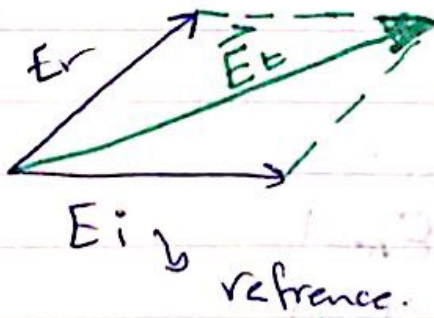 Er
E⃗t
Ei ↘
refrence.